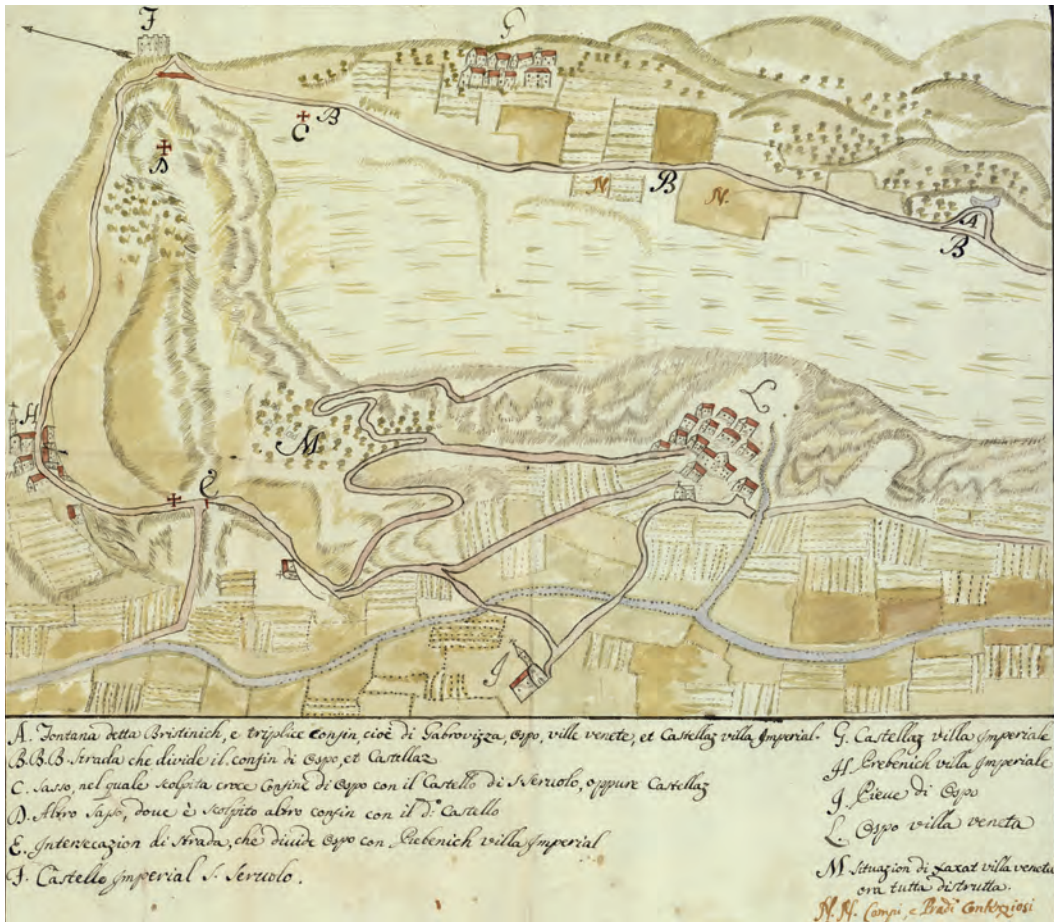 F
G
C
B
D
N
B
N.
A
B
H
L
M
E
I
A. Fontana detta Bristinich, e triplice confin, cioè di Gabrovizza, Ospo, ville venete, et Castellaz villa Imperial.
B.B.B. Strada che divide il confin di Ospo, et Castellaz
C. Sasso, nel quale scolpita croce Confine di Ospo con il Castello di S. Servolo, oppure Castellaz
D. Altro Sasso, dove è scolpito altro confin con il d.º Castello
E. Intersecazion di strada, che divide Ospo con Prebenich villa Imperial
F. Castello Imperial S. Servolo.
G. Castellaz villa Imperiale
H Prebenich villa Imperiale
I Pieve di Ospo
L. Ospo villa veneta
M Situazion di villa veneta
ora tutta distrutta.
N. N. Campi, e Pradi Contenziosi